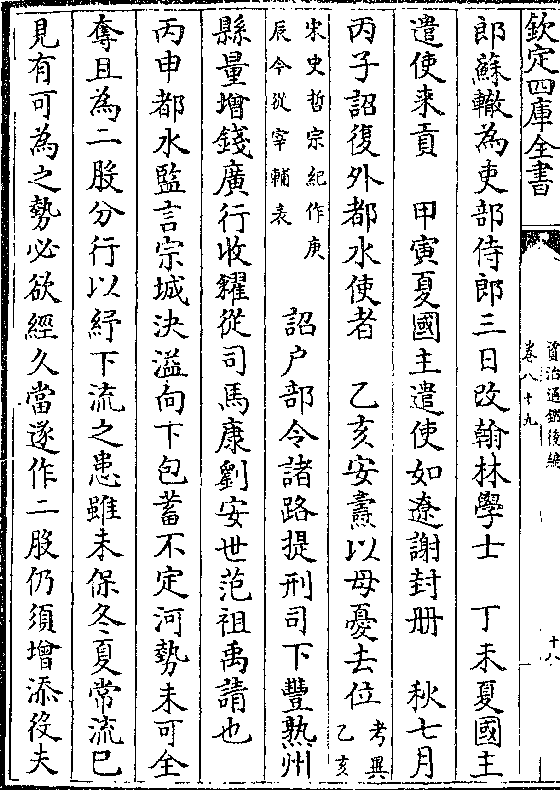 欽定四庫全書
資治通鑑後編
卷八十九
十八
郎蘇轍為吏部侍郎三日改翰林學士　丁未夏國主
遣使來貢　甲寅夏國主遣使如遼謝封册　秋七月
丙子詔復外都水使者　乙亥安燾以母憂去位考異
乙亥
宋史哲宗紀作庚
辰今從宰輔表
詔户部令諸路提刑司下豐熟州
縣量增錢廣行收糴從司馬康劉安世范祖禹請也
丙申都水監言宗城決溢向下包蓄不定河勢未可全
奪且為二股分行以紓下流之患雖未保冬夏常流已
見有可為之勢必欲經久當遂作二股仍須增添役夫